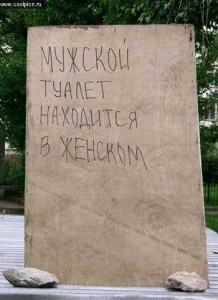 www.coolpics.ru
МУЖСКОЙ
ТУАЛЕТ
НАХОДИТСЯ
В ЖЕНСКОМ.